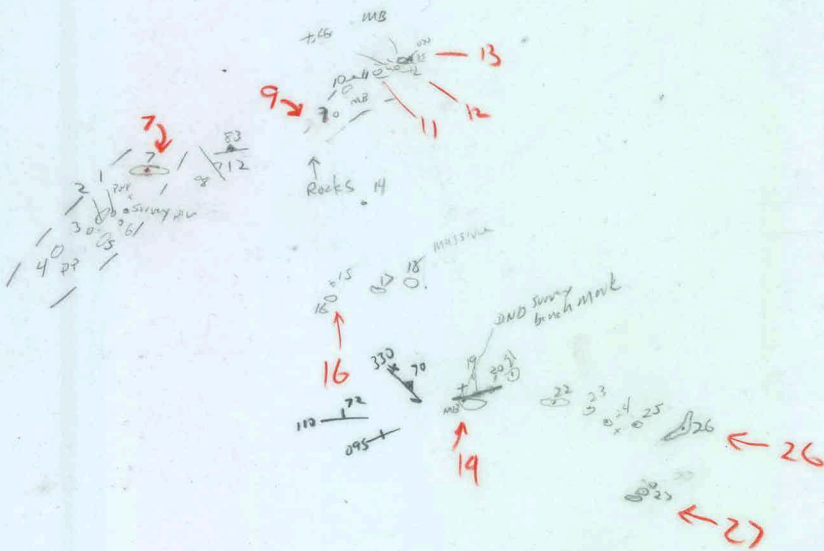 MB
13
9
10
MB
12
11
7
7
83
712
1
2
Rocks 14
3
survey
6
5
4 ??
massive
18
15
17
16
16
DND survey
bench mark
330
70
19
20
21
MB
72
110
095
22
23
24
25
26
26
19
27
27